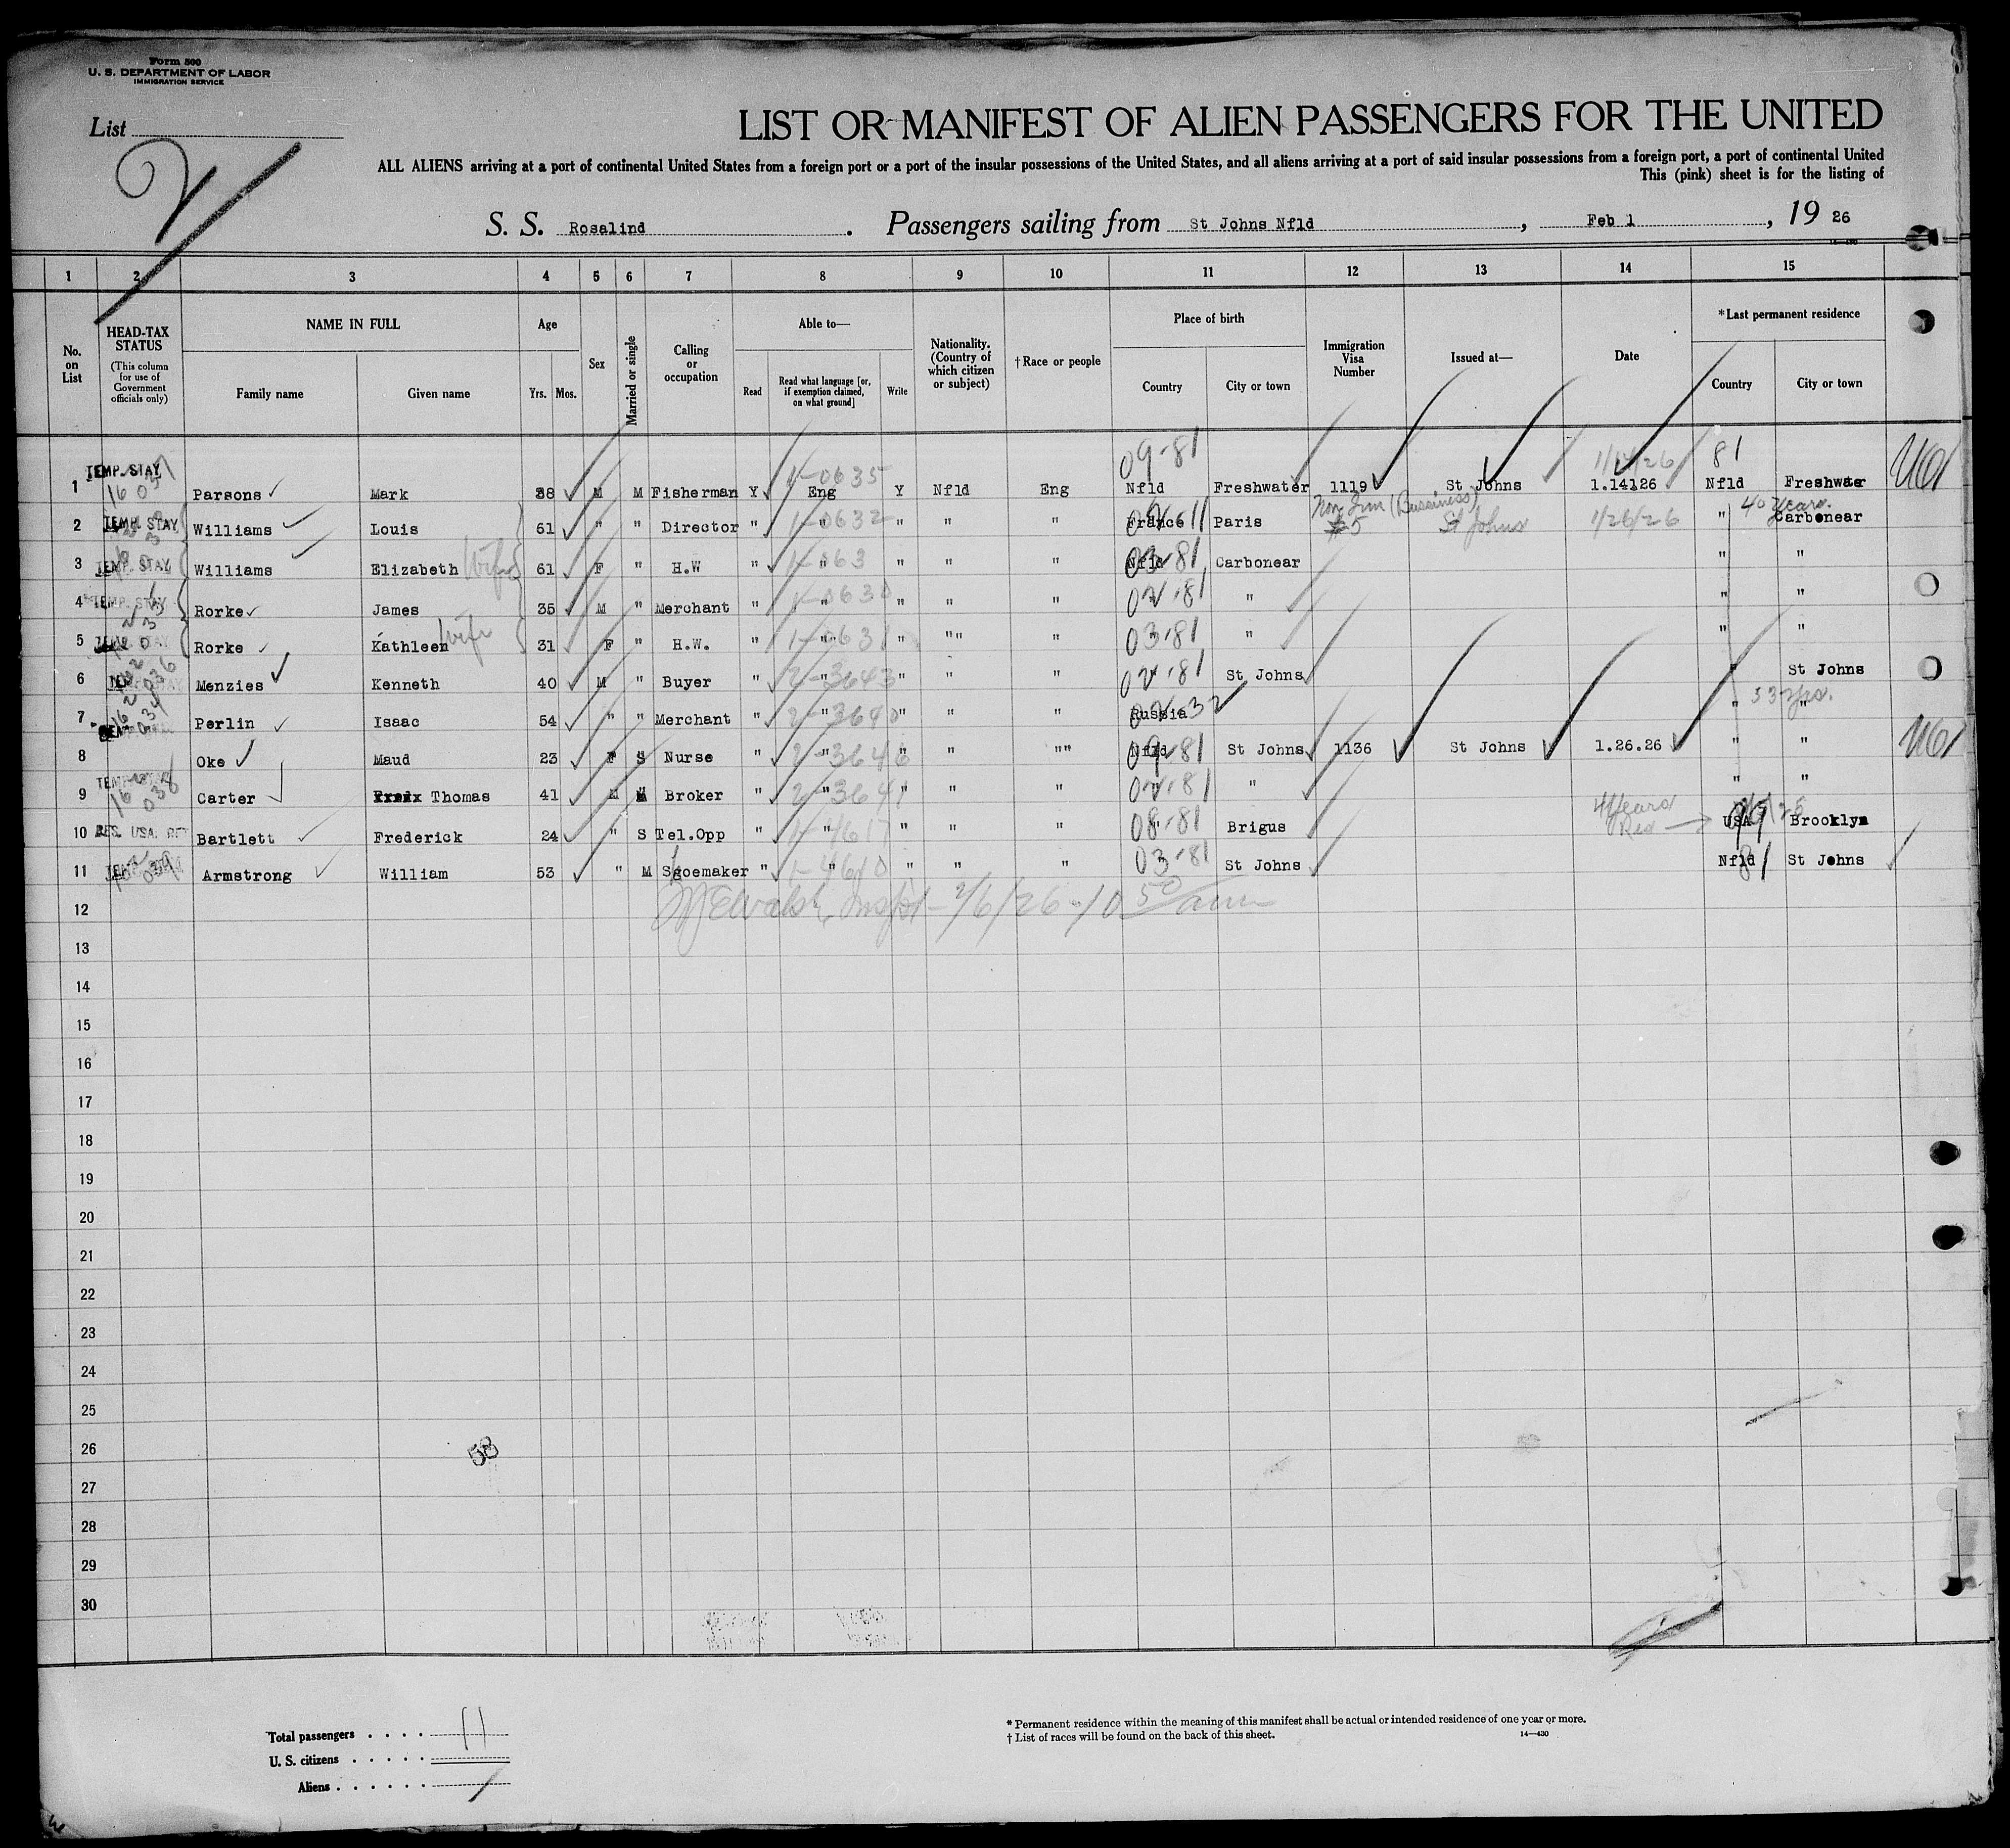 Form 500
U. S. DEPARTMENT OF LABOR
IMMIGRATION SERVICE
List
2
LIST OR MANIFEST OF ALIEN PASSENGERS FOR THE UNITED
ALL ALIENS arriving at a port of continental United States from a foreign port or a port of the insular possessions of the United States, and all aliens arriving at a port of said insular possessions from a foreign port, a port of continental United
This (pink) sheet is for the listing of
S. S. Rosalind . Passengers sailing from St Johns Nfld , Feb 1 , 19 26
1 2 3 4 5 6 7 8 9 10 11 12 13 14 15
No. on List
HEAD-TAX STATUS
(This column for use of Government officials only)
NAME IN FULL
Family name Given name
Age
Yrs. Mos.
Sex
Married or single
Calling or occupation
Able to—
Read Read what language [or, if exemption claimed, on what ground] Write
Nationality. (Country of which citizen or subject)
† Race or people
Place of birth
Country City or town
Immigration Visa Number
Issued at—
Date
* Last permanent residence
Country City or town
09-81 1/14/26 81
1 TEMP. STAY Parsons Mark 38 M M Fisherman Y Eng 1-0635 Y Nfld Eng Nfld Freshwater 1119 St Johns 1.14126 Nfld Freshwate
Non Imm (Bussiness) 40 years.
2 TEMP. STAY Williams Louis 61 " " Director " " 1-0632 " " " France Paris 5 St Johns 1/26/26 " Carbonear
3 TEMP. STAY Williams Elizabeth wife 61 F " H.W " 1-063 " " " Nfld 03-81 Carbonear " "
4 TEMP. STAY Rorke James 35 M " Merchant " " 1-0630 " " " 02-81 " " "
5 Rorke Kathleen wife 31 F " H.W. " " 1-0631 " "" " 03-81 " " "
6 Menzies Kenneth 40 M " Buyer " " 2-3643 " " " 02-81 St Johns " St Johns
53 yrs.
7 Perlin Isaac 54 " " Merchant " " 2-3640 " " " Russia " "
8 Oke Maud 23 F S Nurse " " 2-3646 " " "" Nfld 09-81 St Johns 1136 St Johns 1.26.26 " "
9 Carter Thomas 41 M M Broker " " 2-3641 " " " 02-81 " " "
4 years
10 RES. USA. RET Bartlett Frederick 24 " S Tel.Opp " " " " " 08-81 Brigus Res USA Brooklyn
11 Armstrong William 53 " M Sgoemaker " " 1-4610 " " " 03-81 St Johns Nfld 81 St Johns
12 2/6/26 - 10 50 am
13
14
15
16
17
18
19
20
21
22
23
24
25
26
58
27
28
29
30
Total passengers . . . . 11
U. S. citizens . . . . .
Aliens . . . . . .
* Permanent residence within the meaning of this manifest shall be actual or intended residence of one year or more.
† List of races will be found on the back of this sheet. 14—430